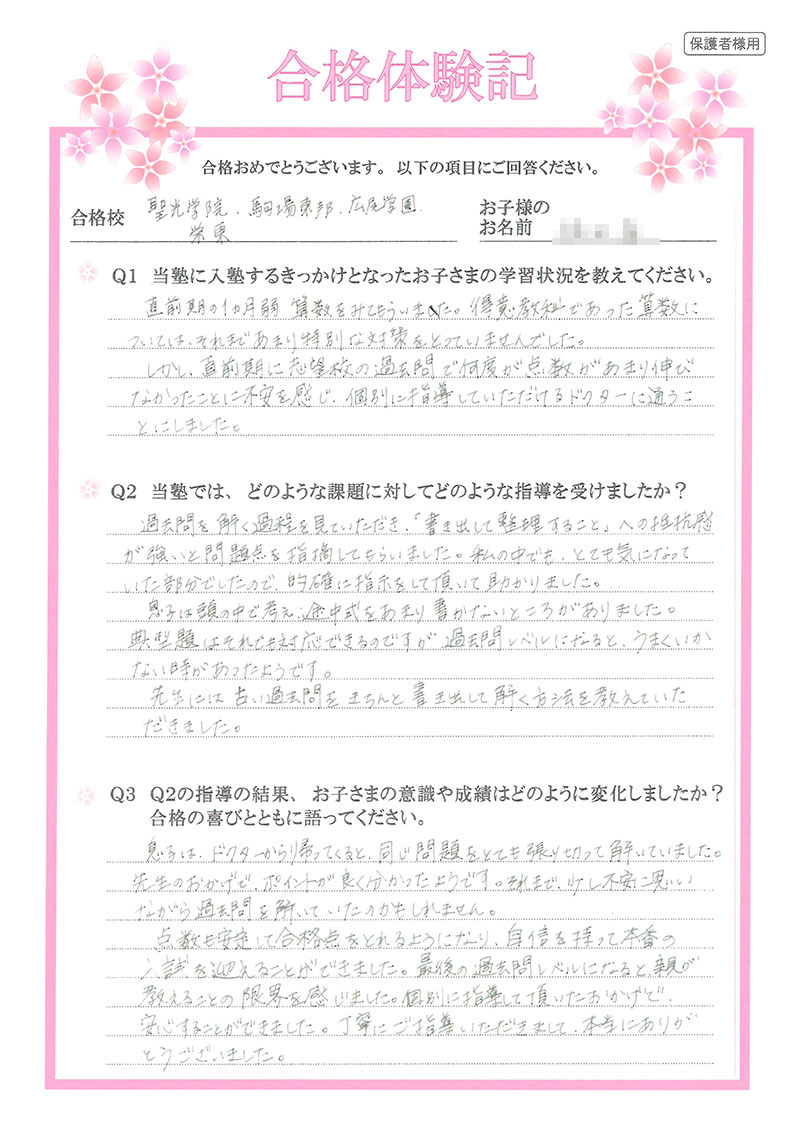 保護者様用
合格体験記
合格おめでとうございます。以下の項目にご回答ください。
合格校 聖光学院、駒場東邦、広尾学園、
栄東
お子様の
お名前
Q1 当塾に入塾するきっかけとなったお子さまの学習状況を教えてください。
直前期の1カ月弱 算数をみてもらいました。得意教科であった算数に
ついては、それまであまり特別な対策をとっていませんでした。
しかし、直前期に志望校の過去問で何度か点数があまり伸び
なかったことに不安を感じ、個別に指導していただけるドクターに通うこ
とにしました。
Q2 当塾では、どのような課題に対してどのような指導を受けましたか？
過去問を解く過程を見ていただき、「書き出して整理すること」への抵抗感
が強いと問題点を指摘してもらいました。私の中でも、とても気になって
いた部分でしたので、的確に指示をして頂いて助かりました。
息子は頭の中で考え、途中式をあまり書かないところがありました。
典型題はそれでも対応できるのですが、過去問レベルになると、うまくいか
ない時があったようです。
先生には古い過去問をきちんと書き出して解く方法を教えていた
だきました。
Q3 Q2の指導の結果、お子さまの意識や成績はどのように変化しましたか？
合格の喜びとともに語ってください。
息子は、ドクターから帰ってくると、同じ問題をとても張り切って解いていました。
先生のおかげで、ポイントが良く分かったようです。それまで、少し不安に思い
ながら過去問を解いていたのかもしれません。
点数も安定して合格点をとれるようになり、自信を持って本番の
入試を迎えることができました。最後の過去問レベルになると、親が
教えることの限界を感じました。個別に指導して頂いたおかげで、
安心することができました。丁寧にご指導いただきまして、本当にありが
とうございました。